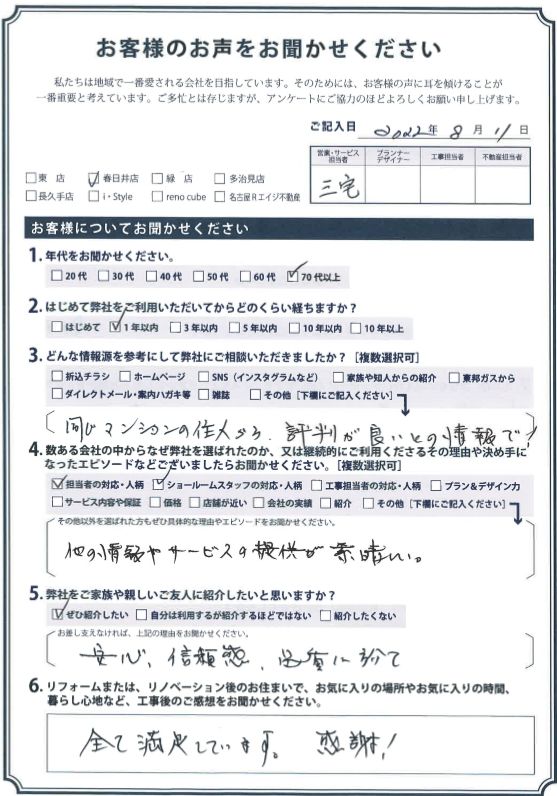 お客様のお声をお聞かせください
私たちは地域で一番愛される会社を目指しています。そのためには、お客様の声に耳を傾けることが
一番重要と考えています。ご多忙とは存じますが、アンケートにご協力のほどよろしくお願い申し上げます。
ご記入日 2022年 8月 11日
営業・サービス担当者 プランナーデザイナー 工事担当者 不動産担当者
三宅
□東 店 ☑春日井店 □緑 店 □多治見店
□長久手店 □i・Style □reno cube □名古屋Rエイジ不動産
お客様についてお聞かせください
1. 年代をお聞かせください。
□20代 □30代 □40代 □50代 □60代 ☑70代以上
2. はじめて弊社をご利用いただいてからどのくらい経ちますか?
□はじめて ☑1年以内 □3年以内 □5年以内 □10年以内 □10年以上
3. どんな情報源を参考にして弊社にご相談いただきましたか?［複数選択可］
□折込チラシ □ホームページ □SNS（インスタグラムなど） □家族や知人からの紹介 □東邦ガスから
□ダイレクトメール・案内ハガキ等 □雑誌 □その他［下欄にご記入ください］
同じマンションの住人から、評判が良いとの情報で!
4. 数ある会社の中からなぜ弊社を選ばれたのか、又は継続的にご利用くださるその理由や決め手に
なったエピソードなどございましたらお聞かせください。［複数選択可］
☑担当者の対応・人柄 ☑ショールームスタッフの対応・人柄 □工事担当者の対応・人柄 □プラン&デザイン力
□サービス内容や保証 □価格 □店舗が近い □会社の実績 □紹介 □その他［下欄にご記入ください］
その他以外を選ばれた方もぜひ具体的な理由やエピソードをお聞かせください。
他の情報やサービスの提供が素晴い。
5. 弊社をご家族や親しいご友人に紹介したいと思いますか?
☑ぜひ紹介したい □自分は利用するが紹介するほどではない □紹介したくない
お差し支えなければ、上記の理由をお聞かせください。
安心、信頼感、品質に於て
6. リフォームまたは、リノベーション後のお住まいで、お気に入りの場所やお気に入りの時間、
暮らし心地など、工事後のご感想をお聞かせください。
全て満足しています。 感謝!